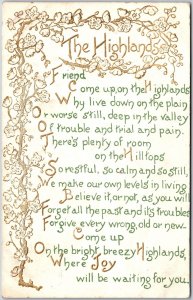 The Highlands
Friend
Come up, on the Highlands
Why live down on the plain
Or worse still, deep in the valley
Of trouble and trial and pain.
There's plenty of room
on the Hilltops
So restful, so calm and so still,
We make our own levels in living
Believe it, or not, as you will
Forget all the past and its troubles
Forgive every wrong, old or new.
Come up
On the bright, breezy Highlands,
Where Joy
will be waiting for you.